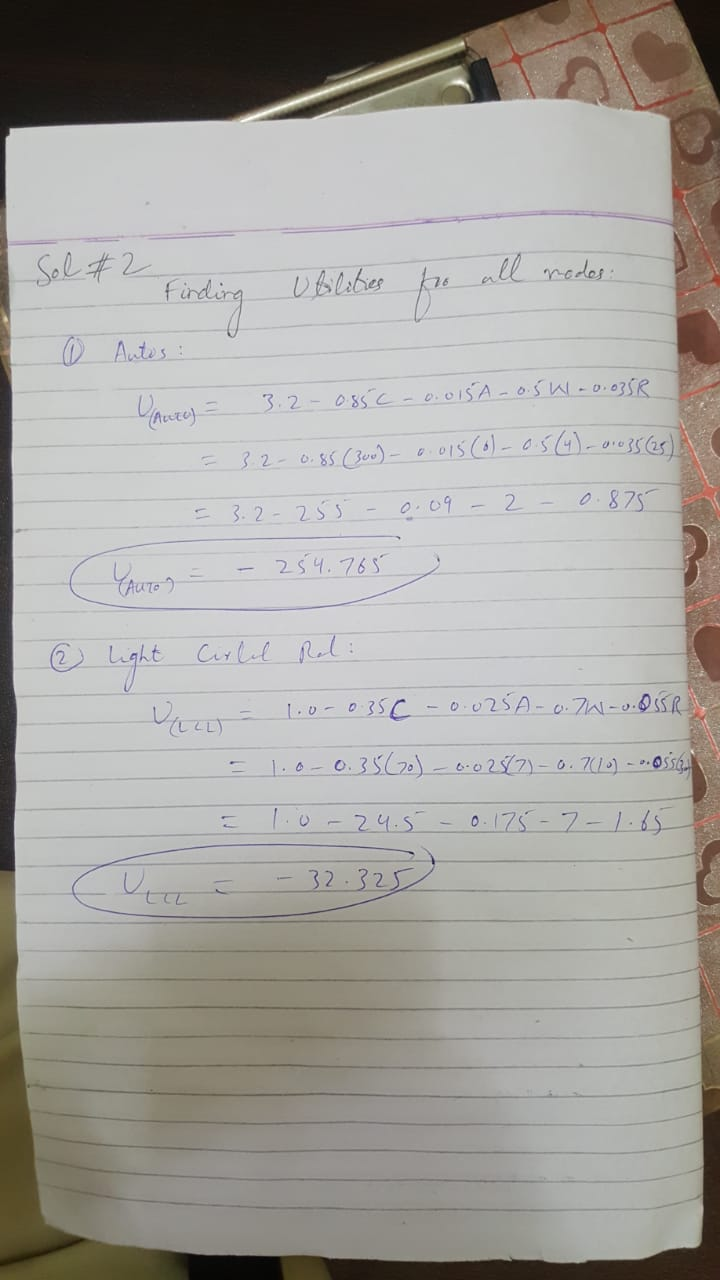 Sol # 2
Finding Utilities for all modes:
① Autos :
U(AUTO) = 3.2 - 0.85C - 0.015A - 0.5W - 0.035R
= 3.2 - 0.85(300) - 0.015(6) - 0.5(4) - 0.035(25)
= 3.2 - 255 - 0.09 - 2 - 0.875
U(AUTO) = - 254.765
② Light Rel :
= 1.0 - 0.35C - 0.025A - 0.7W - 0.055R
= 1.0 - 0.35(70) - 0.025(7) - 0.7(10) - 0.055(30)
= 1.0 - 24.5 - 0.175 - 7 - 1.65
= - 32.325